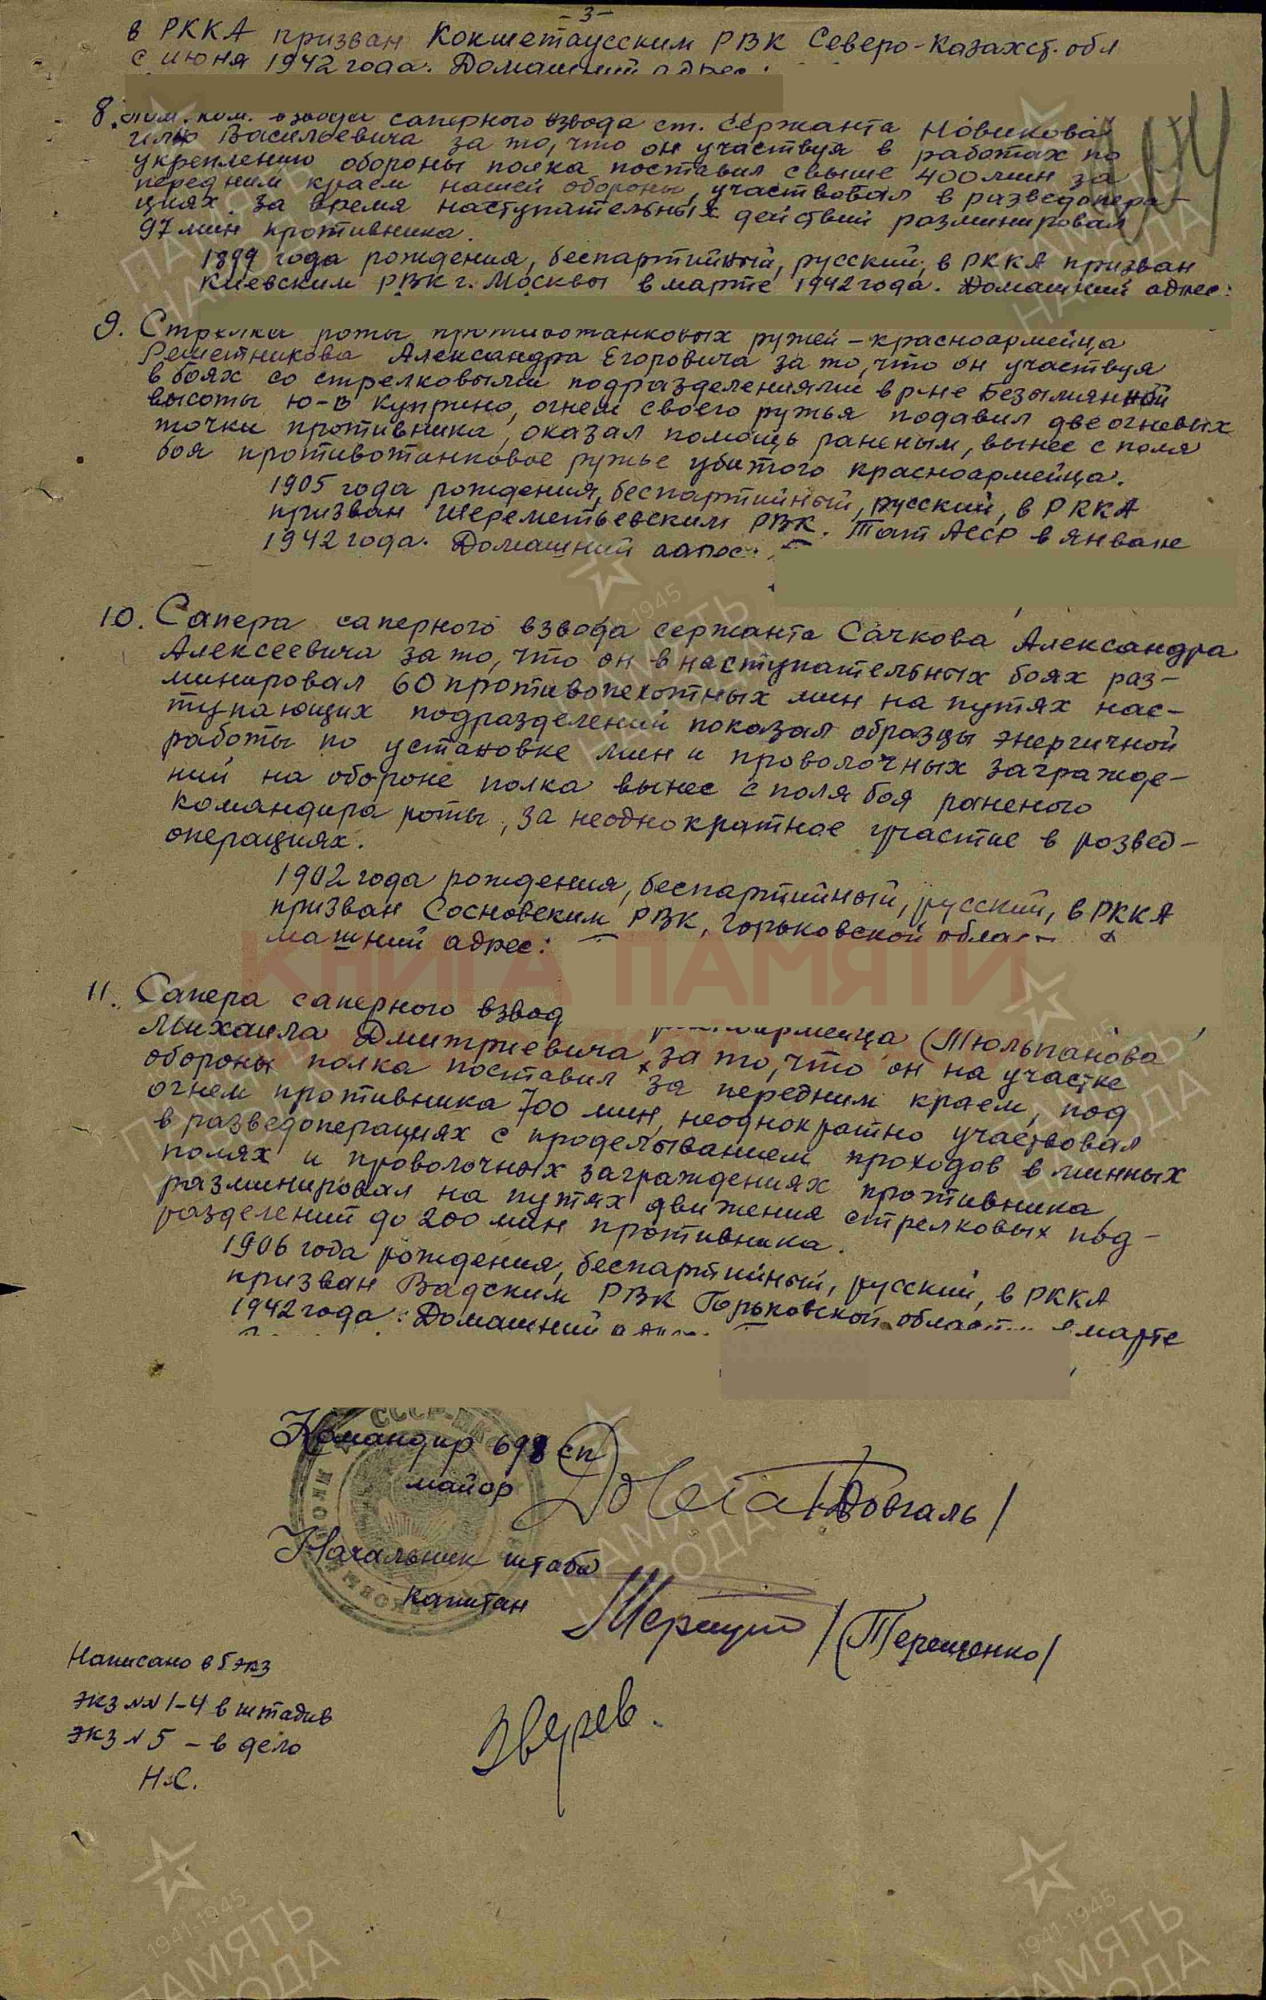 -3-
в РККА призван Кокшетаусским РВК Северо-Казахст. обл
с июня 1942 года. Домашний адрес:
8. Пом. ком. взвода саперного взвода ст. сержанта Новикова
Васильевича за то, что он участвуя в работах по
укреплению обороны полка поставил свыше 400 мин за
передним краем нашей обороны, участвовал в разведопера-
циях. За время наступательных действий разминировал
97 мин противника.
1899 года рождения, беспартийный, русский, в РККА призван
Киевским РВК г. Москвы в марте 1942 года. Домашний адрес:
9. Стрелка роты противотанковых ружей - красноармейца
Решетникова Александра Егоровича за то, что он участвуя
в боях со стрелковыми подразделениями в р-не безымянной
высоты ю-в Куприно, огнем своего ружья подавил две огневых
точки противника, оказал помощь раненым, вынес с поля
боя противотанковое ружье убитого красноармейца.
1905 года рождения, беспартийный, русский, в РККА
призван Шереметьевским РВК. Тат АССР в январе
1942 года. Домашний адрес:
10. Сапера саперного взвода сержанта Сачкова Александра
Алексеевича за то, что он в наступательных боях раз-
минировал 60 противопехотных мин на путях нас-
тупающих подразделений показал образцы энергичной
работы по установке мин и проволочных загражде-
ний на обороне полка вынес с поля боя раненого
командира роты, за неоднократное участие в розвед-
операциях.
1902 года рождения, беспартийный, русский, в РККА
призван Сосновским РВК, Горьковской област
машний адрес:
11. Сапера саперного взвод
красноармейца (Тюльпанова
Михаила Дмитриевича за то, что он на участке
обороны полка поставил за передним краем, под
огнем противника 700 мин, неоднократно участвовал
в разведоперациях с проделыванием проходов в минных
полях и проволочных заграждениях противника,
разминировал на путях движения стрелковых под-
разделений до 200 мин противника.
1906 года рождения, беспартийный, русский, в РККА
призван Вадским РВК Горьковской области в марте
1942 года: Домашний адрес:
Командир 698 сп
майор /Довгаль/
Начальник штаба
капитан /Терещенко/
Зверев.
Написано в 5 экз
экз №№ 1-4 в штадив
экз № 5 - в дело
Н.С.
КНИГА ПАМЯТИ
ПАМЯТЬ НАРОДА
1941-1945